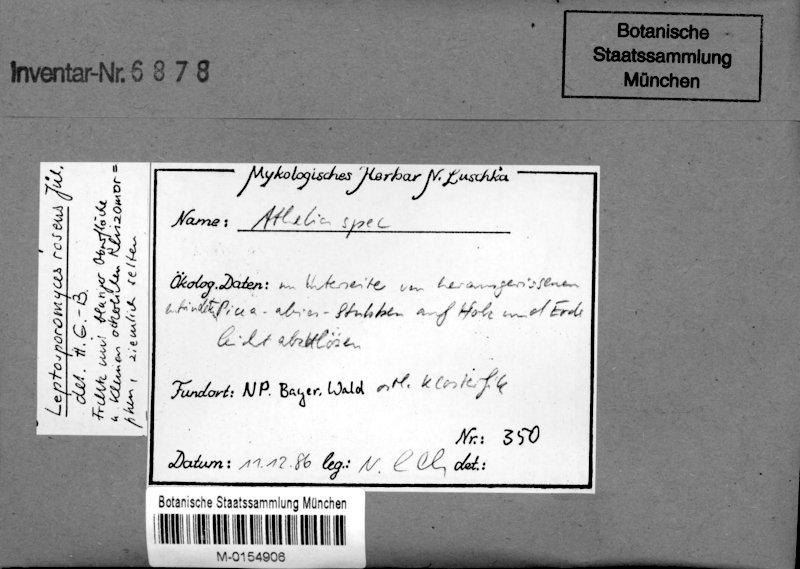 Inventar-Nr. 6878
Botanische
Staatssammlung
München
Leptosporomyces roseus Jül.
det. H. G.-B.
ziemlich selten
Mykologisches Herbar N. Luschka
Name: Athelia spec
Ökolog. Daten: an Unterseite von herausgerissenen
Picea-abies-Stubben auf Holz und Erde
leicht abzulösen
Fundort: NP. Bayer. Wald östl. Klosterfilz
Nr.: 350
Datum: 11.12.86 leg.: N. det.:
Botanische Staatssammlung München
M-0154906